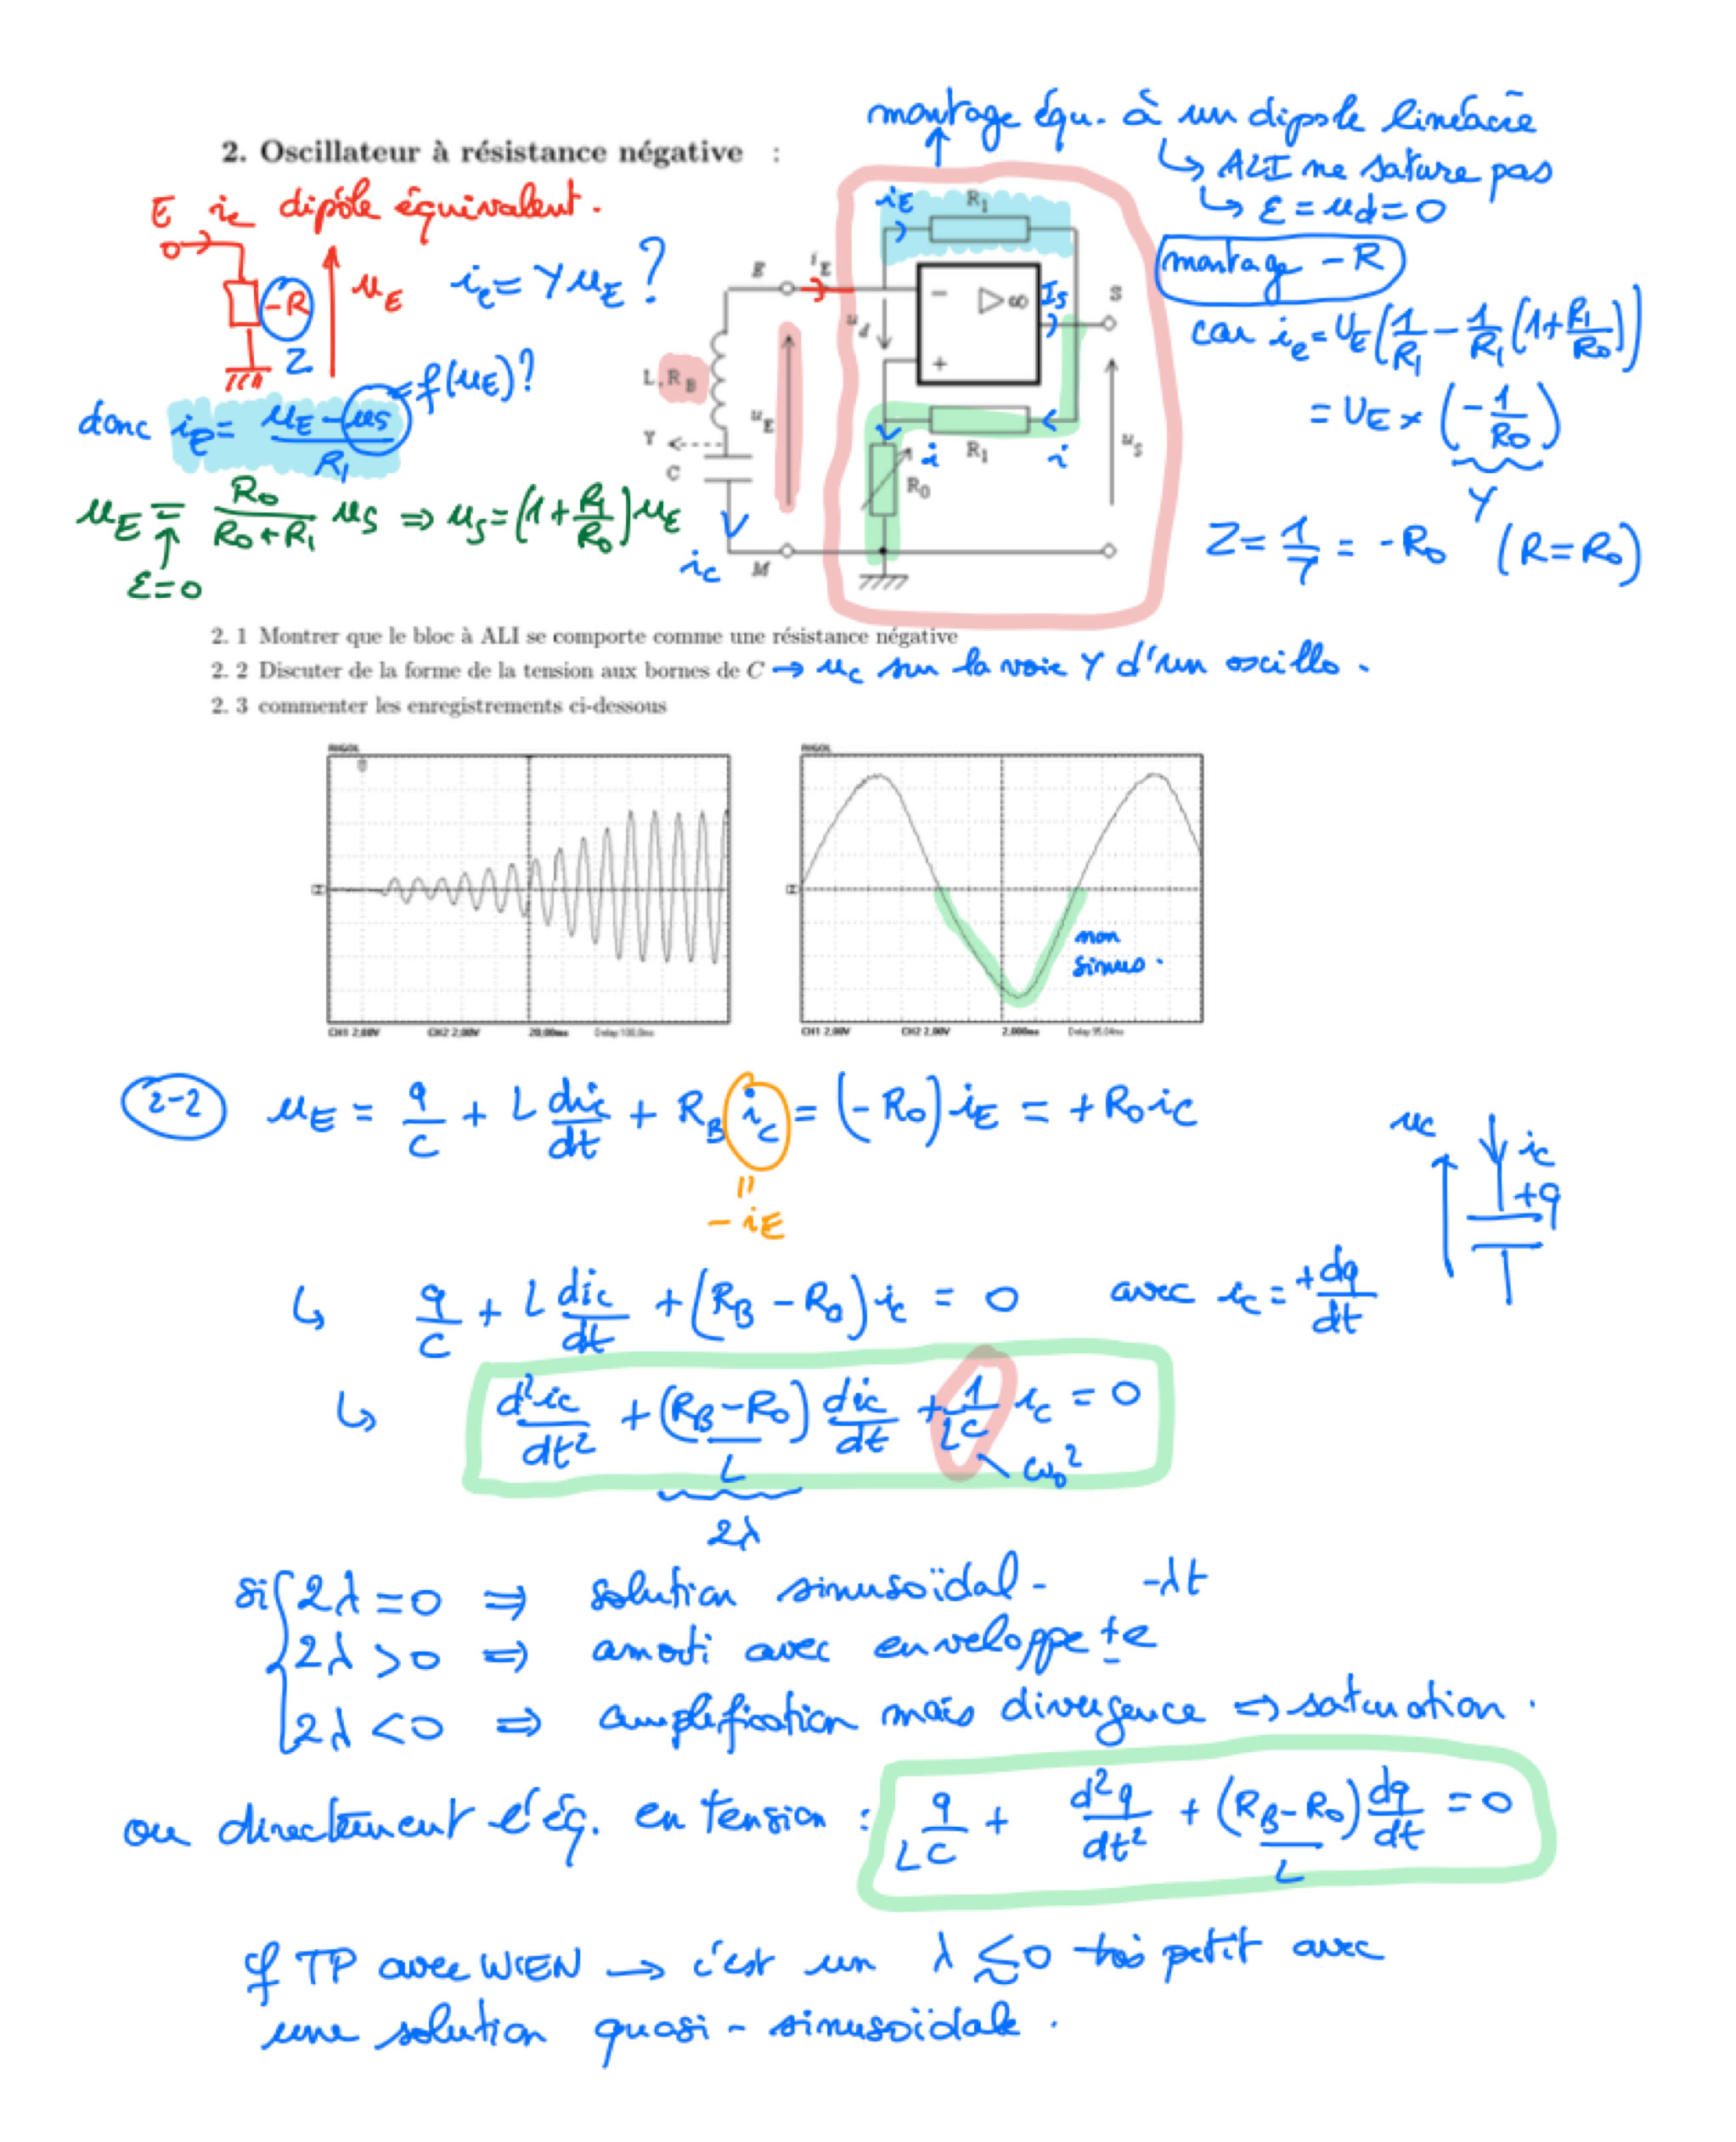 montage équ. à un dipole linéaire
2. Oscillateur à résistance négative :
↳ ALI ne sature pas
↳ ε = ud = 0
E ie dipôle équivalent.
-R
uE
Z
ie = Y uE ?
montage -R
car ie = UE (1/R1 - 1/R1 (1 + R1/R0))
= UE × (-1/R0)
Y
Z = 1/Y = -R0 (R = R0)
donc ie = (uE - us)/R1
= f(uE) ?
uE = R0/(R0 + R1) us ⇒ us = (1 + R1/R0) uE
ε = 0
iE
R1
E
iE
ud
−
▷∞
Is
S
+
L, RB
uE
Y
C
i
R1
i
R0
uS
ic
M
2. 1 Montrer que le bloc à ALI se comporte comme une résistance négative
2. 2 Discuter de la forme de la tension aux bornes de C → uc sur la voie Y d'un oscillo.
2. 3 commenter les enregistrements ci-dessous
RIGOL
CH1 2.00V CH2 2.00V 20.00ms Delay:100.0ms
RIGOL
non
sinus.
CH1 2.00V CH2 2.00V 2.000ms Delay:95.04ms
2-2 uE = q/C + L dic/dt + RB ic = (-R0) iE = + R0 ic
=
- iE
uc
ic
+q
↳ q/C + L dic/dt + (RB - R0) ic = 0 avec ic = + dq/dt
↳ d²ic/dt² + (RB - R0)/L dic/dt + 1/LC ic = 0
ω0²
2λ
si 2λ = 0 ⇒ solution sinusoïdal -
2λ > 0 ⇒ amorti avec enveloppe ± e -λt
2λ < 0 ⇒ amplification mais divergence ⇒ saturation.
ou directement l'éq. en tension : q/LC + d²q/dt² + (RB - R0)/L dq/dt = 0
cf TP avec WIEN → c'est un λ ≲ 0 très petit avec
une solution quasi-sinusoïdale.